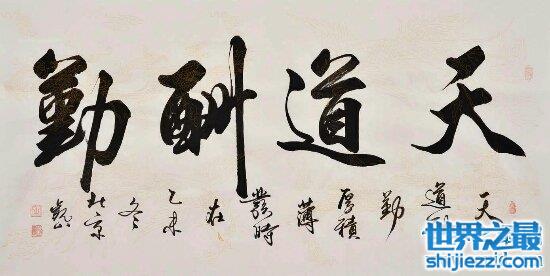 天道酬勤
天道酬勤厚積薄發時在乙未冬北京
世界之最
shijiezzl.com